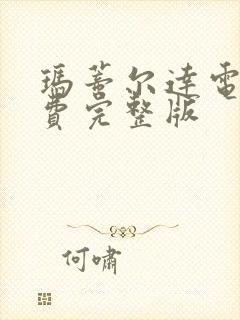 瑪蒂尔達電
費完整版
何嘯